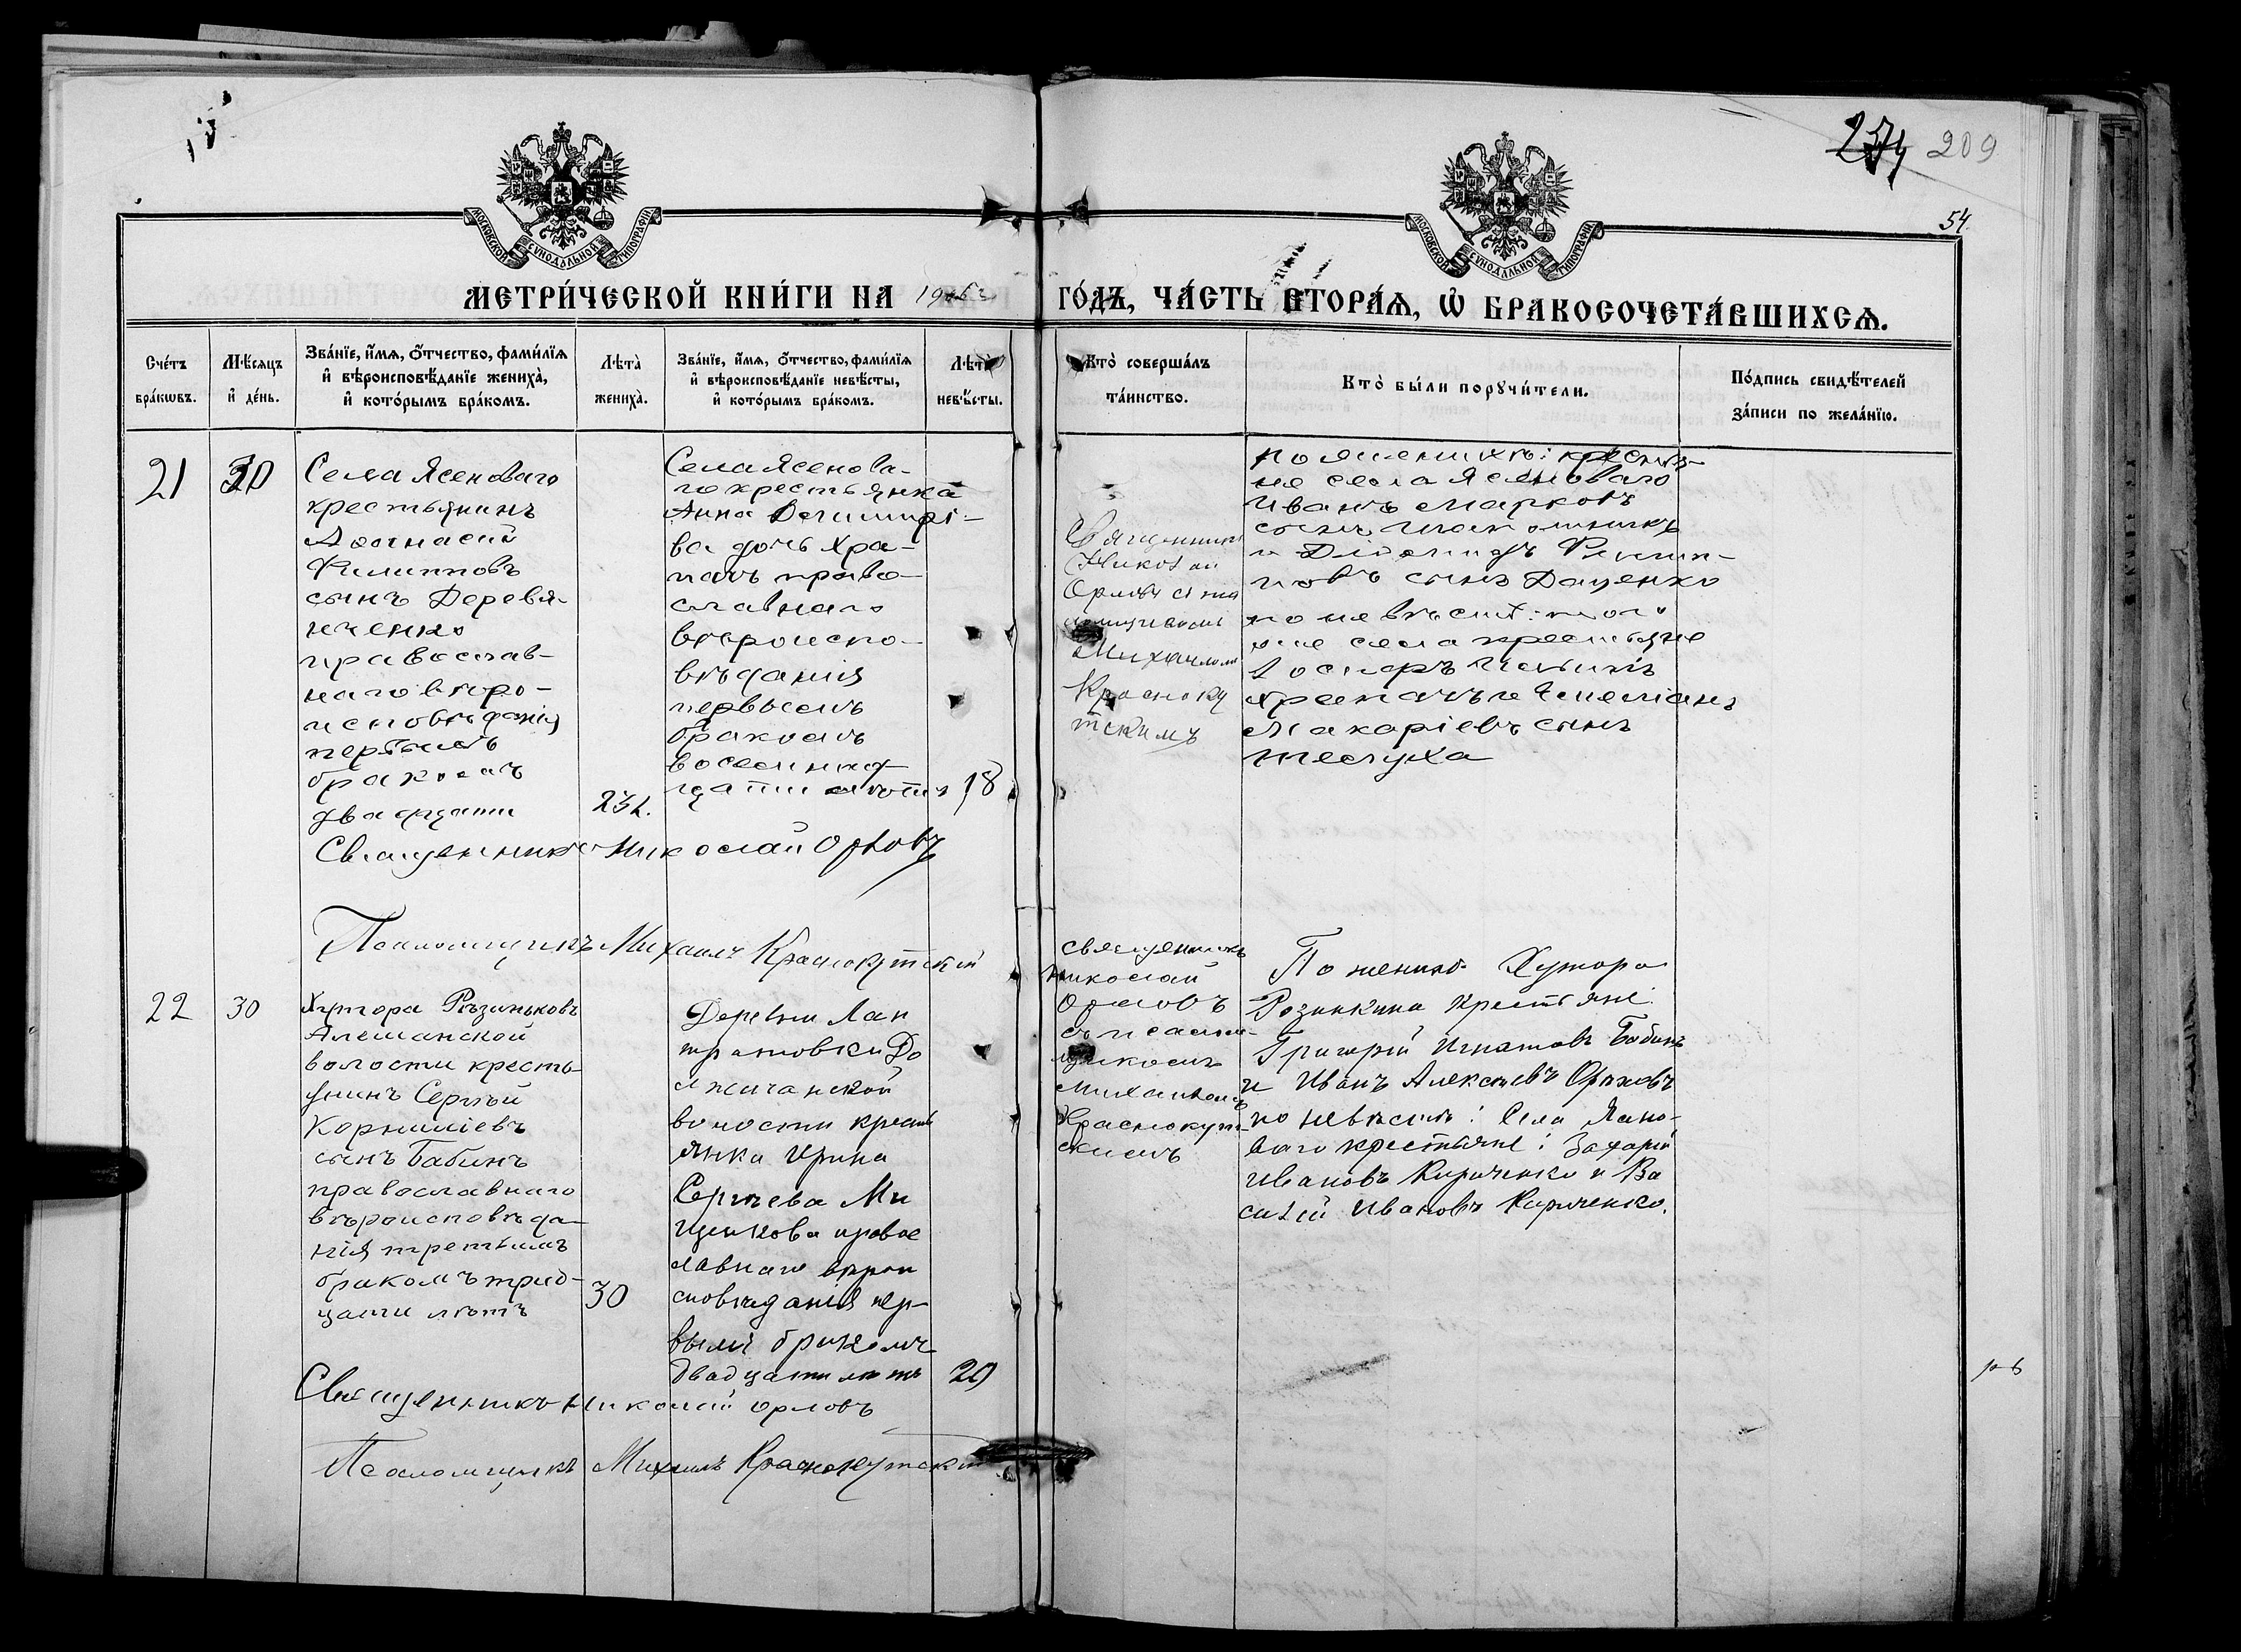 209
54.
МОСКОВСКОЙ СѴНОДАЛЬНОЙ ТИПОГРАФІИ
МОСКОВСКОЙ СѴНОДАЛЬНОЙ ТИПОГРАФІИ
МЕТРИ́ЧЕСКОЙ КНИ́ГИ НА
ГО́ДЪ, ЧА́СТЬ ВТОРА́Ѧ, Ѡ҆ БРАКОСОЧЕТА́ВШИХСѦ.
Сче́тъ бра́кѡвъ.
Мѣ́сяцъ и҆ де́нь.
Зва́нїе, и҆́мѧ, ѻ҆́тчество, фами́лїѧ и҆ вѣроисповѣ́данїе жениха̀, и҆ кото́рымъ бра́комъ.
Лѣ́та̀ жениха̀.
Зва́нїе, и҆́мѧ, ѻ҆́тчество, фами́лїѧ и҆ вѣроисповѣ́данїе невѣ́сты, и҆ кото́рымъ бра́комъ.
Лѣ́та̀ невѣ́сты.
Кто̀ соверша́лъ та́инство.
Кто̀ бы́ли порꙋчи́тели.
По́дпись свидѣ́телей за́писи по жела́нїю.
21
30
Села Ясеноваго
крестьянинъ
Афонасій
Филипповъ
сынъ Деревя-
нченко
православ-
наго вѣро-
исповѣданія
первымъ
бракомъ
двадцати
23 л.
Села Ясенова-
го крестьянка
Анна
ва дочь Хра-
пачъ право-
славнаго
вѣроиспо-
вѣданія
первымъ
бракомъ
восемнад-
цати лѣтъ
18
Священникъ
Николай
Орловъ
Михаиломъ
Краснокут
тскимъ
по женихѣ: крестья-
не села Ясеноваго
Иванъ Марковъ
сынъ
и Филип-
повъ сынъ Даценко
по невѣстѣ: того
же села крестьяне
Храпачъ и Емеліанъ
Макаріевъ сынъ
Шелуха
Священникъ Николай Орловъ
Псаломщикъ Михаилъ Краснокутскій
22
30
Хутора Рѣзиньковъ
Алешанской
волости кресть
янинъ Сергѣй
Корниліевъ
сынъ Бабинъ
православнаго
вѣроисповѣда-
нія третьимъ
бракомъ трид-
цати лѣтъ
30
Деревни Лап
траковки До
лжичанской
волости кресть
янка Ирина
Сергѣева Ми
щенкова правос
лавнаго вѣрои
сповѣданія пер-
вымъ бракомъ
двадцати лѣтъ
20
священникъ
Николай
Орловъ
съ псалом-
щикомъ
Михаиломъ
Краснокут-
скимъ
По женихѣ Хутора
Розинкина крестьяне
Григорій Игнатовъ Бабинъ
и Иванъ Алексѣевъ Орѣховъ
по невѣстѣ: Села Ясено-
ваго крестьяне: Захарій
Ивановъ Кириченко и Ва
силій Ивановъ Кириченко.
Священникъ Николай Орловъ
Псаломщикъ Михаилъ Краснокутскій